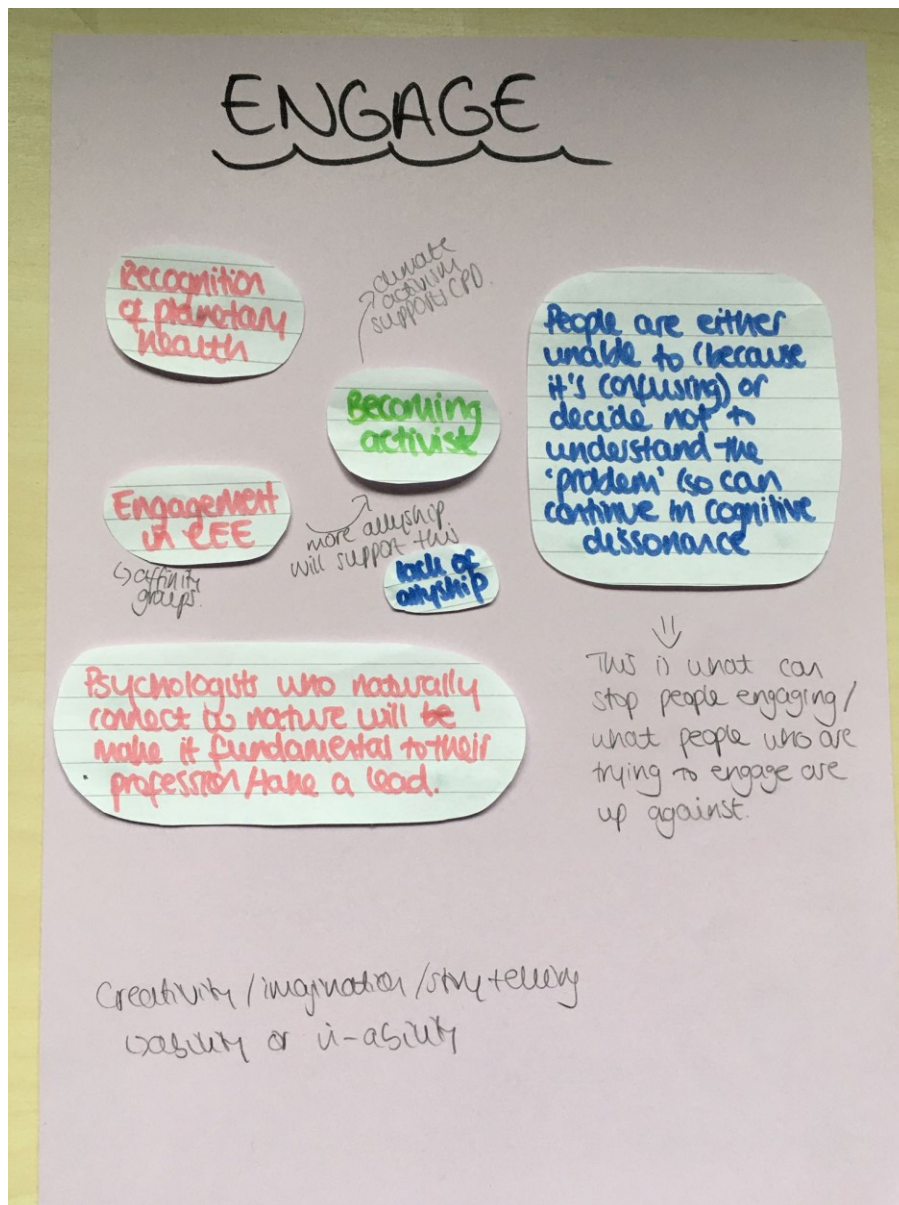 ENGAGE
Recognition
of planetary
health
climate
activism
supports CPD.
Becoming
activist
People are either
unable to (because
it's confusing) or
decide not to
understand the
'problem' (so can
continue in cognitive
dissonance
Engagement
in CEE
↳ affinity
groups.
more allyship
will support this
lack of
allyship
Psychologists who naturally
connect to nature will be
make it fundamental to their
profession/take a lead.
This is what can
stop people engaging/
what people who are
trying to engage are
up against.
Creativity/imagination/storytelling
↳ability or in-ability